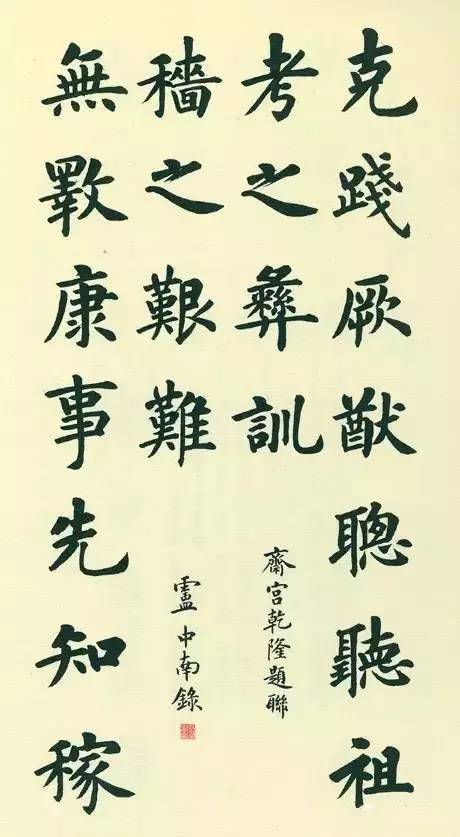 克踐厥猷聰聽祖
考之彝訓
無斁康事先知稼
穡之艱難
齋宮乾隆題聯
盧中南錄